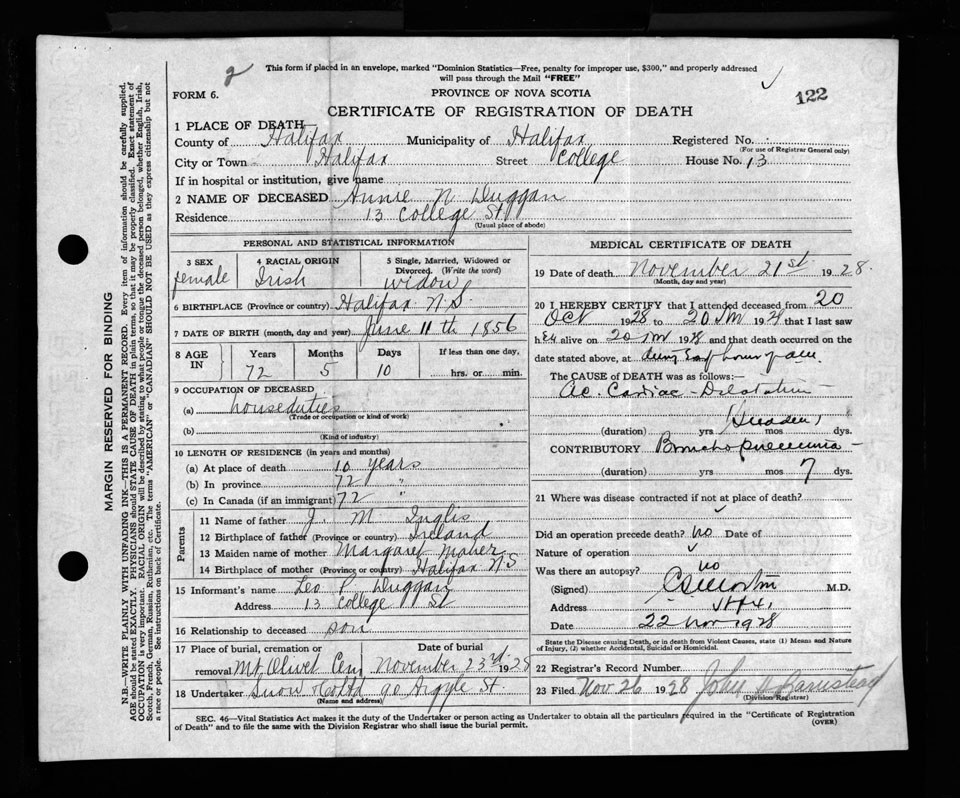 2
This form if placed in an envelope, marked "Dominion Statistics—Free, penalty for improper use, $300," and properly addressed
will pass through the Mail "FREE"
FORM 6.
PROVINCE OF NOVA SCOTIA
122
CERTIFICATE OF REGISTRATION OF DEATH
1 PLACE OF DEATH
County of Halifax Municipality of Halifax Registered No.
(For use of Registrar General only)
City or Town Halifax Street College House No. 13
If in hospital or institution, give name
2 NAME OF DECEASED Annie N Duggan
Residence 13 College St
(Usual place of abode)
PERSONAL AND STATISTICAL INFORMATION
3 SEX female
4 RACIAL ORIGIN Irish
5 Single, Married, Widowed or Divorced. (Write the word) widow
6 BIRTHPLACE (Province or country) Halifax N.S.
7 DATE OF BIRTH (month, day and year) June 11th 1856
8 AGE IN Years Months Days If less than one day
72 5 10 hrs. or min.
9 OCCUPATION OF DECEASED
(a) houseduties
(Trade or occupation or kind of work)
(b)
(Kind of industry)
10 LENGTH OF RESIDENCE (in years and months)
(a) At place of death 10 years
(b) In province 72 "
(c) In Canada (if an immigrant) 72 "
Parents
11 Name of father J. M. Inglis
12 Birthplace of father (Province or country) Ireland
13 Maiden name of mother Margaret Maher
14 Birthplace of mother (Province or country) Halifax N S
15 Informant's name Leo P Duggan
Address 13 College St
16 Relationship to deceased son
17 Place of burial, cremation or removal Mt Olivet Cem
Date of burial November 23rd 1928
18 Undertaker Snow & Co Ltd 90 Argyle St.
(Name and address)
MEDICAL CERTIFICATE OF DEATH
19 Date of death November 21st 1928.
(Month, day and year)
20 I HEREBY CERTIFY that I attended deceased from 20
Oct 1928 to 20 1928 that I last saw
her alive on 20 1928 and that death occurred on the
date stated above, at
The CAUSE OF DEATH was as follows:—
Ac. Cardiac Dilatation
(duration) yrs mos dys.
CONTRIBUTORY Broncho pneumonia
(duration) yrs mos 7 dys.
21 Where was disease contracted if not at place of death?
Did an operation precede death? no Date of
Nature of operation
Was there an autopsy? no
(Signed) M.D.
Address Hfx.
Date 22 Nov 1928
State the Disease causing Death, or in death from Violent Causes, state (1) Means and Nature
of Injury, (2) whether Accidental, Suicidal or Homicidal.
22 Registrar's Record Number
23 Filed Nov 26 1928 John Barnstead
(Division Registrar)
SEC. 46—Vital Statistics Act makes it the duty of the Undertaker or person acting as Undertaker to obtain all the particulars required in the "Certificate of Registration
of Death" and to file the same with the Division Registrar who shall issue the burial permit.
(OVER)
MARGIN RESERVED FOR BINDING
N.B.—WRITE PLAINLY WITH UNFADING INK—THIS IS A PERMANENT RECORD. Every item of information should be carefully supplied.
AGE should be stated EXACTLY. PHYSICIANS should STATE CAUSE OF DEATH in plain terms, so that it may be properly classified. Exact statement of
OCCUPATION is very important. RACIAL ORIGIN will be described by stating to what people or tongue the deceased person belonged, whether English, Irish,
Scotch, French, German, Russian, Ruthenian, etc. The terms "AMERICAN" or "CANADIAN" SHOULD NOT BE USED as they express citizenship but not
a race or people. See instructions on back of Certificate.